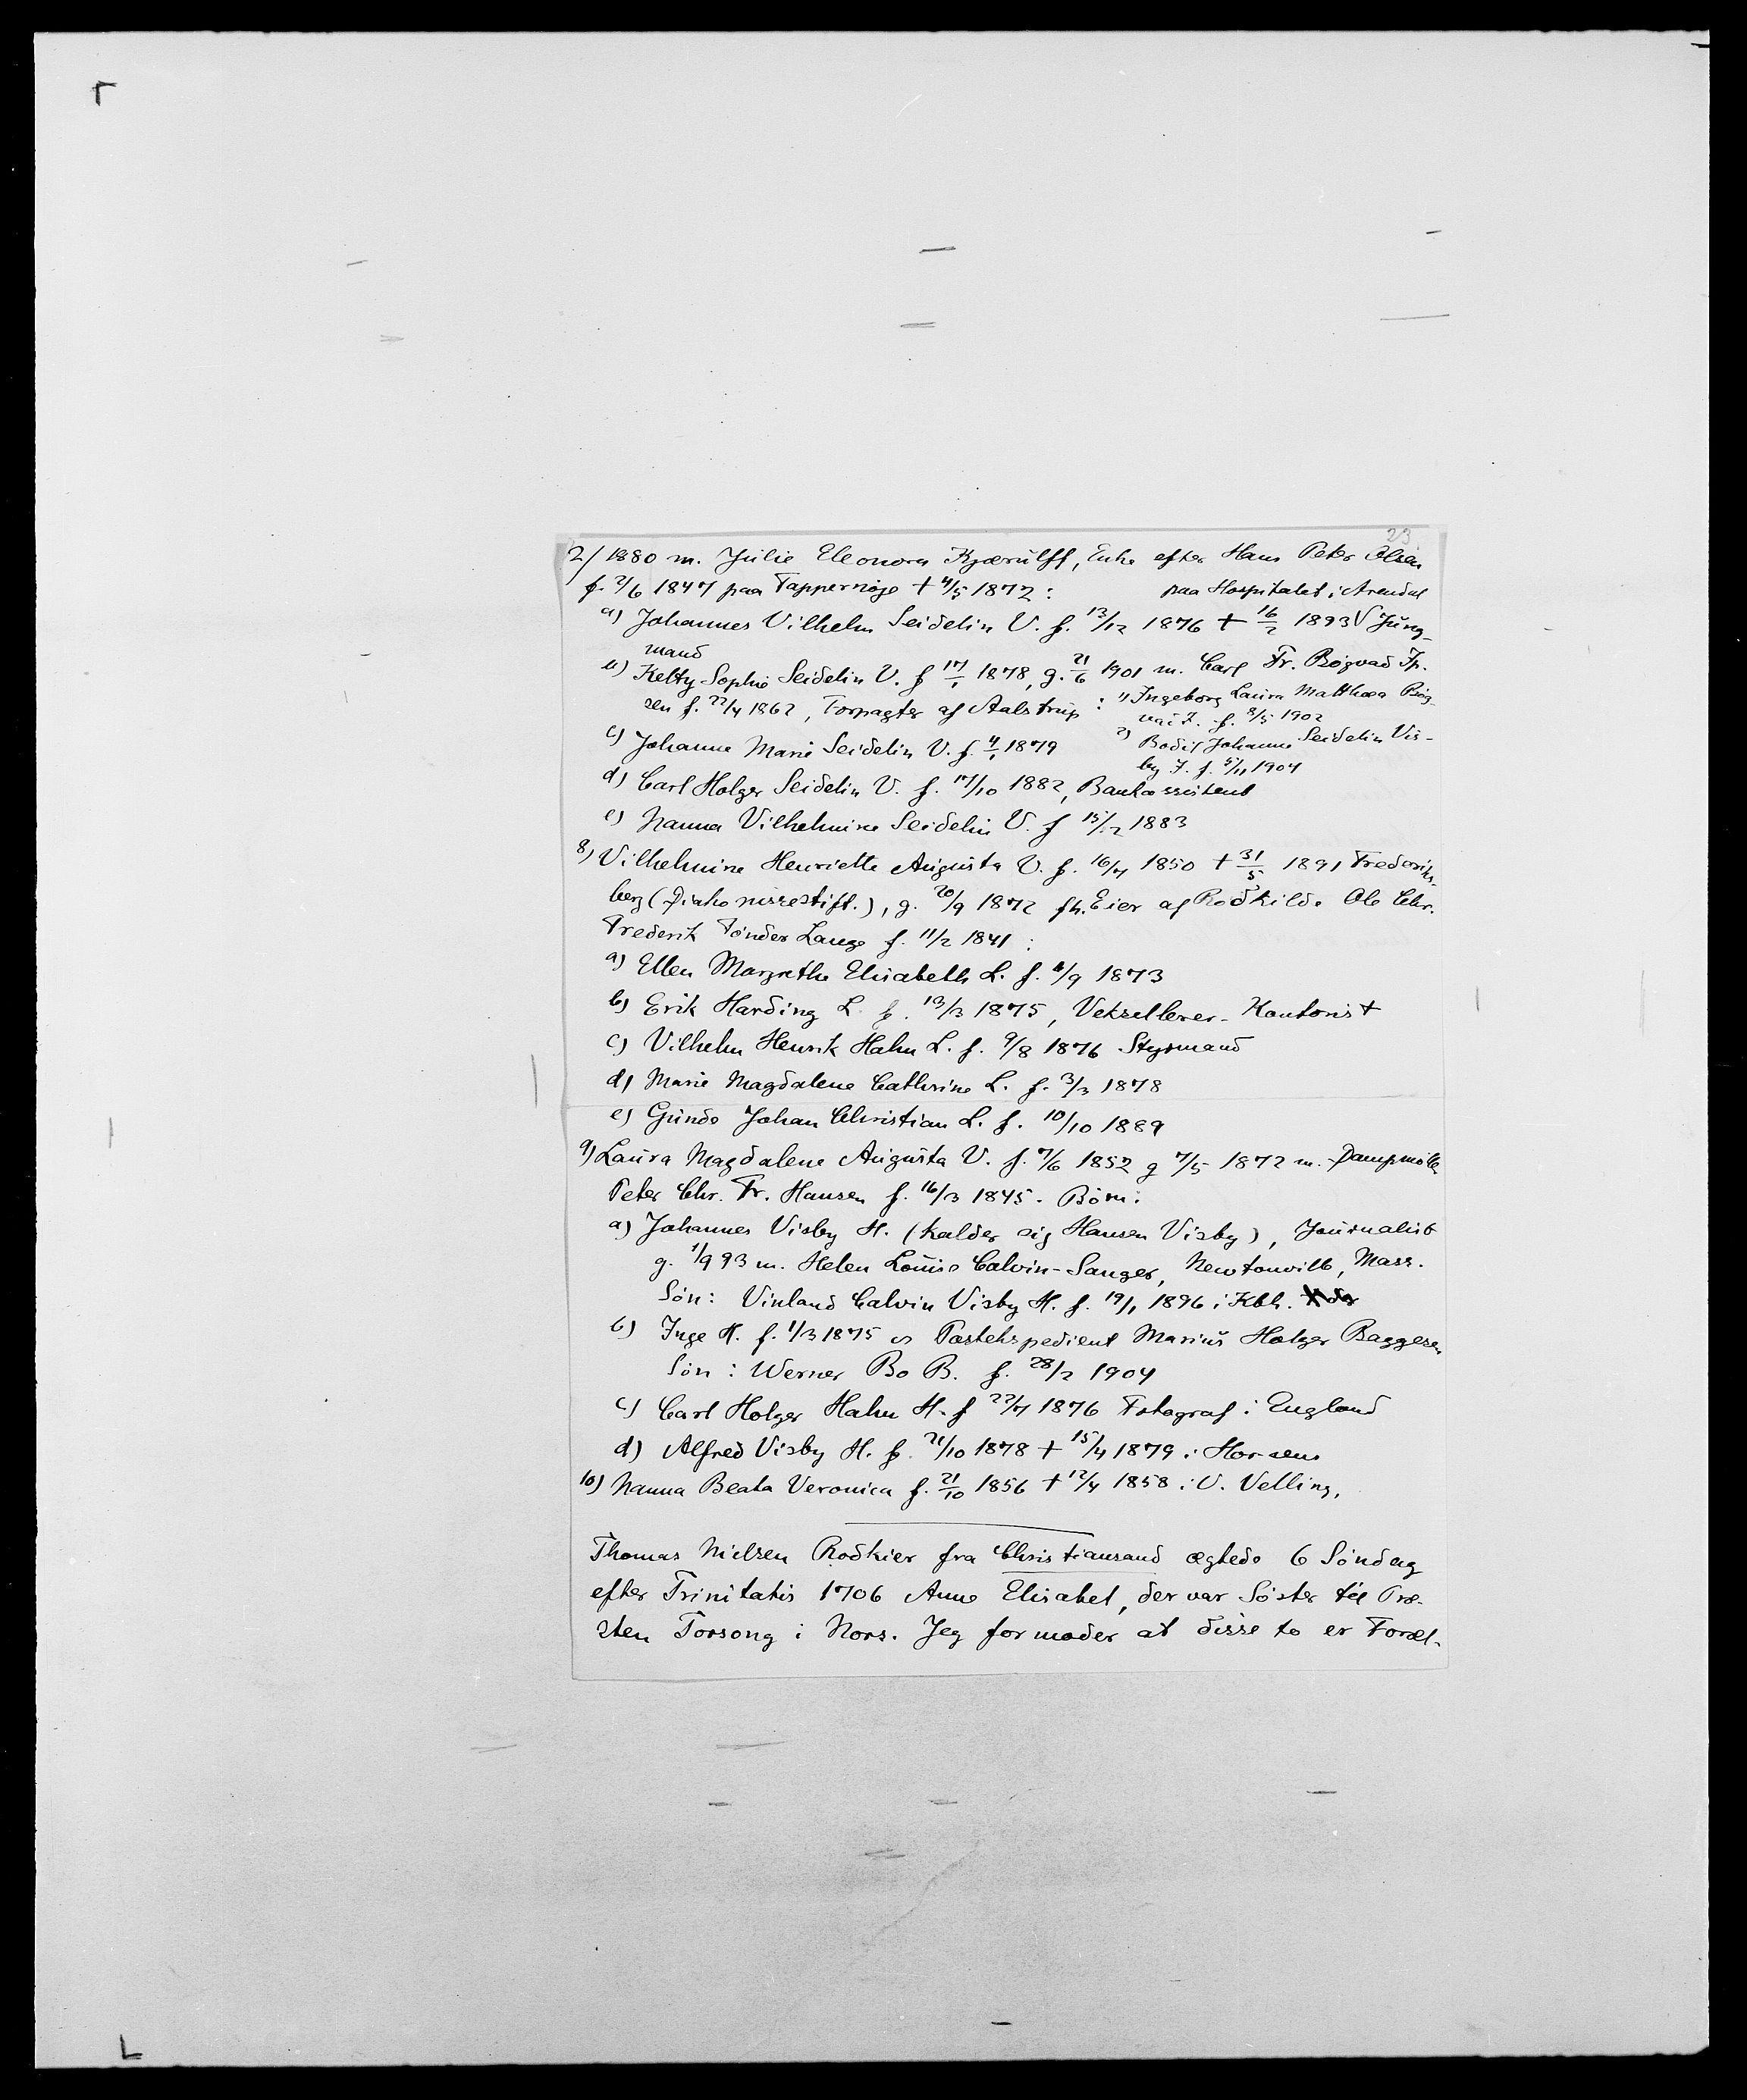 23
2/ 1880 m. Julie Eleonora Kjærulff, Enke efter Hans Peter Olsen
f. 2/6 1847 paa Tappernøje † 4/5 1872 :
paa Hospitalet i Arendal
a) Johannes Vilhelm Seidelin V. f. 13/12 1876 † 16/2 1893 V Jung-
mand
b) Ketty Sophie Seidelin V. f 17/1 1878, g. 21/6 1901 m. Carl Fr. Bögvad
sen f. 22/4 1862, Forpagter af Aalstrup : 1) Ingeborg Laura Matthæa Bög-
vad I. f. 8/5 1902
c) Johanne Marie Seidelin V. f. 4/1 1879
2) Bodil Johanne Seidelin Vis-
by I. f. 5/11 1904
d) Carl Holger Seidelin V. f. 17/10 1882, Bankassistent
e) Nanna Vilhelmine Seidelin V. f 15/12 1883
8) Vilhelmine Henriette Augusta V. f. 16/7 1850 † 31/5 1891 Frederiks-
berg (Diakonissestift.), g. 20/9 1872 fh. Eier af Rodkilde Ole Chr.
Frederik Tönder Lange f. 11/2 1841 :
a) Ellen Margrethe Elisabeth L. f. 6/9 1873
b) Erik Harding L. f. 13/3 1875, Vekselerer-Kontorist
c) Vilhelm Henrik Hahn L. f. 9/8 1876 Styrmand
d) Marie Magdalene Cathrine L. f. 3/3 1878
e) Gunde Johan Christian L. f. 10/10 1889
9) Laura Magdalene Augusta V. f. 7/6 1852 g 7/5 1872 m. Dampmöller
Peter Chr. Fr. Hansen f. 16/3 1845. Börn:
a) Johannes Visby H. (kalder sig Hansen Visby), Journalist
g. 1/9 93 m. Helen Louise Calvin-Sanger, Newtonville, Mass.
Sön: Vinland Calvin Visby H. f. 19/1 1896 i Kbh.
b) Inge H. f. 1/3 1875 ∞ Postekspedient Marius Holger Baggesen
Sön : Werner Bo B. f. 28/2 1904
c) Carl Holger Hahn H. f 22/7 1876 Fotograf i England
d) Alfred Visby H. f. 21/10 1878 † 15/4 1879 i Horsens
10) Nanna Beata Veronica f. 21/10 1856 † 12/4 1858 i V. Velling.
Thomas Nielsen Rodkier fra Christiansand ægtede 6 Söndag
efter Trinitatis 1706 Anne Elisabet, der var Söster til Præ-
sten Torsong i Nors. Jeg formoder at disse to er Foræl-